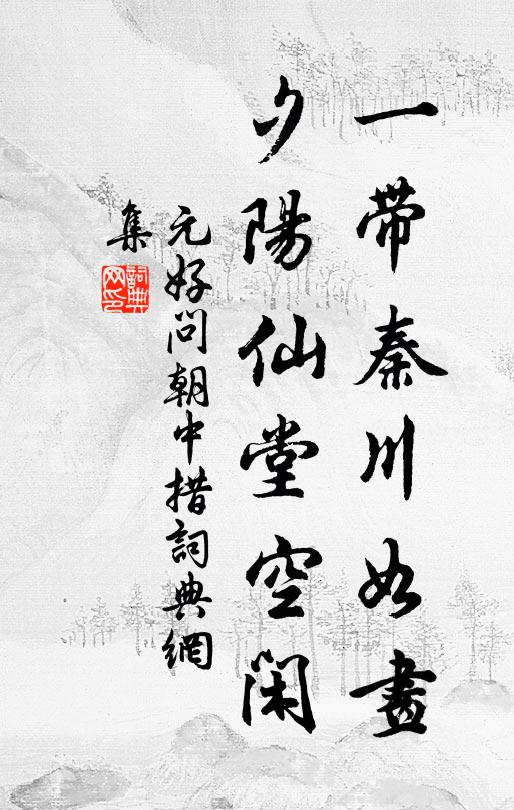 一帶秦川如畫
夕陽仙堂空闲
元好问朝中措詞典網
集
詞典
网印